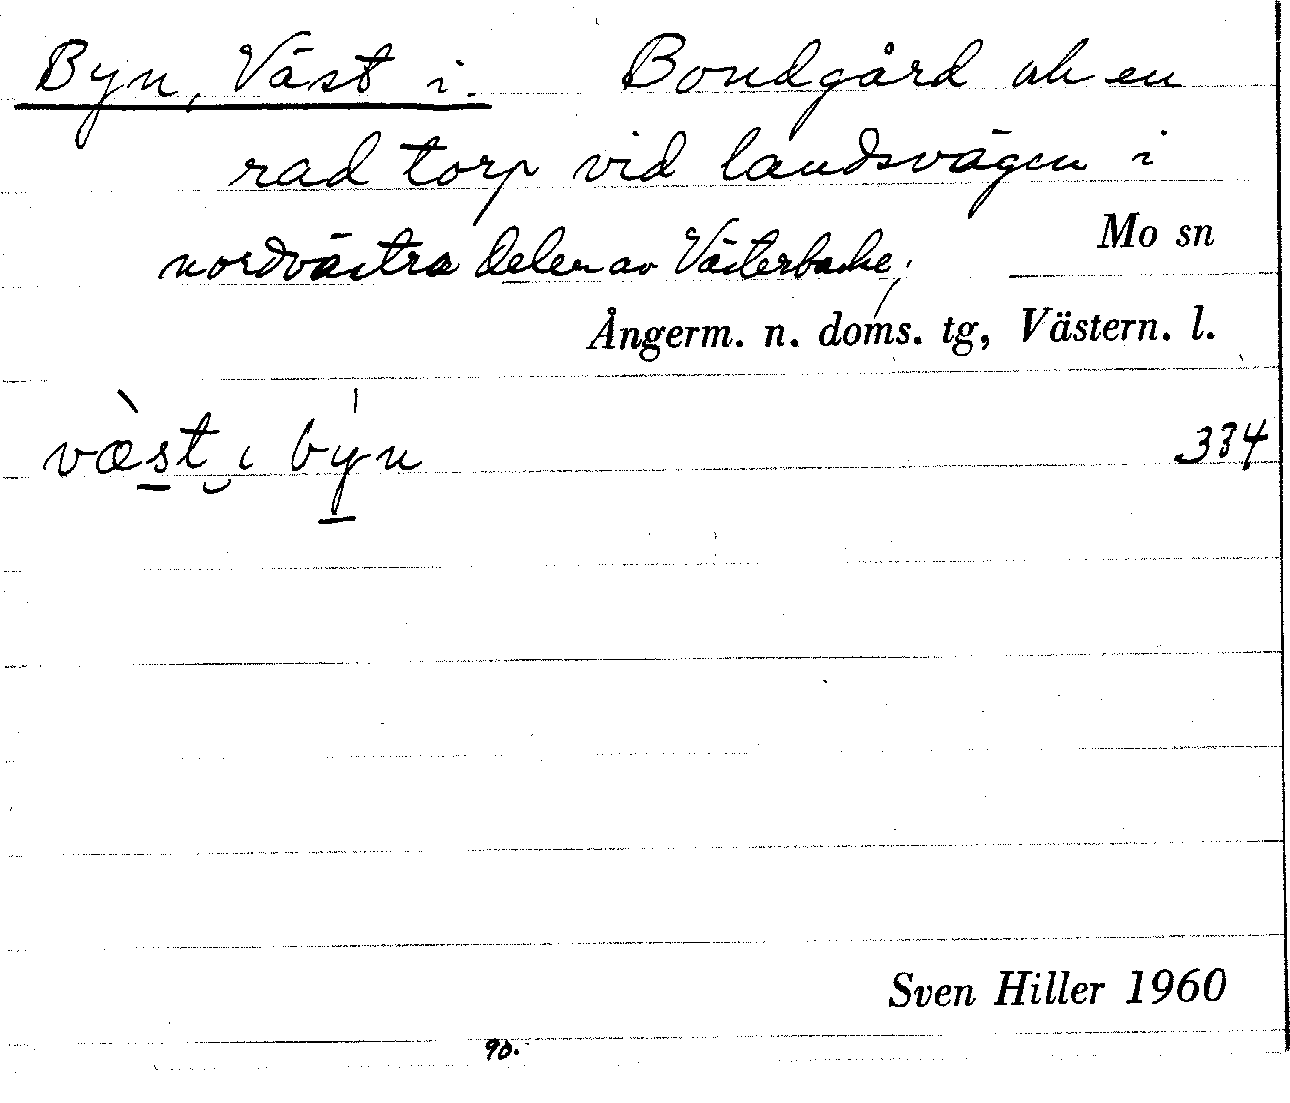 Byn, Väst i. Bondgård och en
rad torp vid landsvägen i
nordvästra delen av Västerbacke.
Mo sn
Ångerm. n. doms. tg, Västern. l.
væ̀st̮ ɩ by̍n
334
Sven Hiller 1960
90.